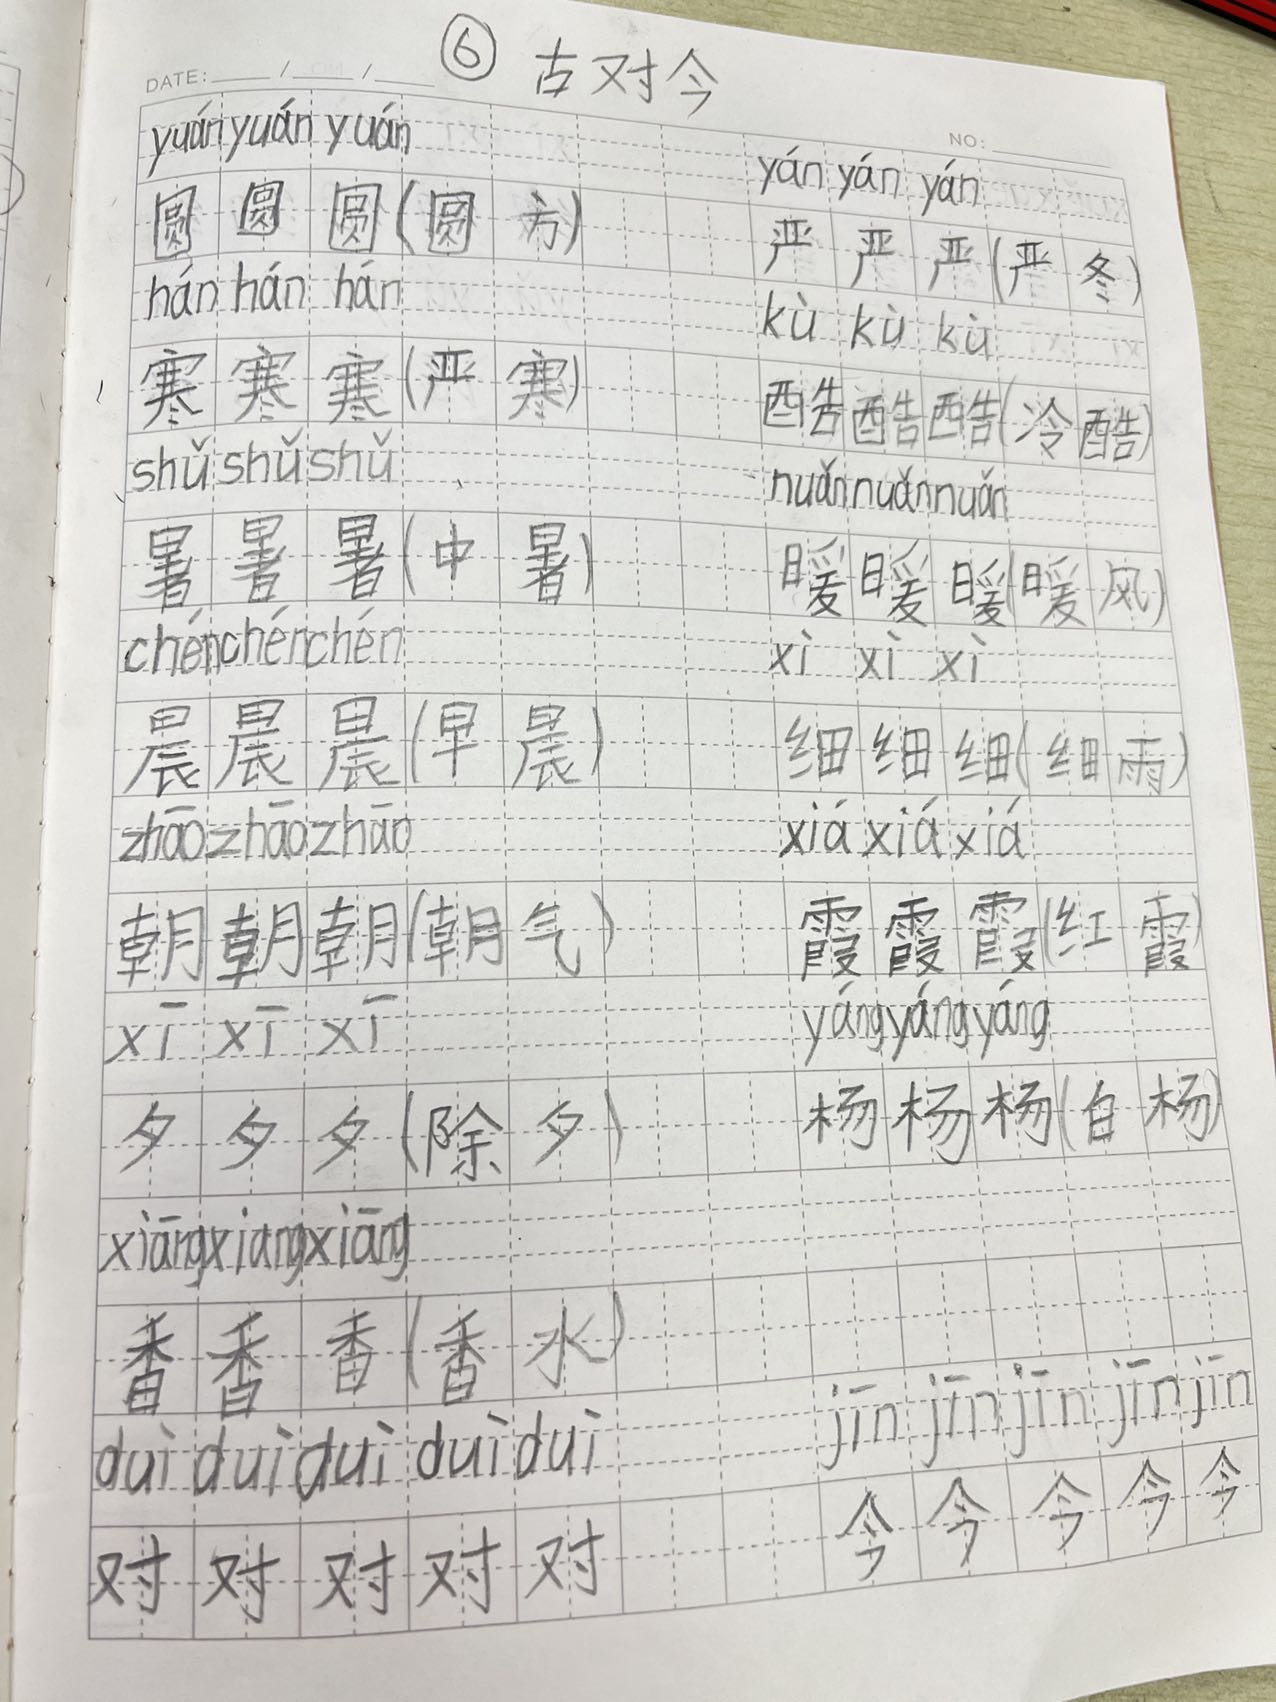 ⑥ 古对今
DATE: ___ / ___ / ___
NO: ___
yuán yuán yuán
圆 圆 圆 (圆 方)
hán hán hán
寒 寒 寒 (严 寒)
shǔ shǔ shǔ
暑 暑 暑 (中 暑)
chén chén chén
晨 晨 晨 (早 晨)
zhāo zhāo zhāo
朝 朝 朝 (朝 气)
xī xī xī
夕 夕 夕 (除 夕)
xiāng xiang xiāng
香 香 香 (香 水)
duì duì duì duì duì
对 对 对 对 对
yán yán yán
严 严 严 (严 冬)
kù kù kù
酷 酷 酷 (冷 酷)
nuǎn nuǎn nuǎn
暖 暖 暖 (暖 风)
xì xì xì
细 细 细 (细 雨)
xiá xiá xiá
霞 霞 霞 (红 霞)
yáng yáng yáng
杨 杨 杨 (白 杨)
jīn jīn jīn jīn jīn
今 今 今 今 今